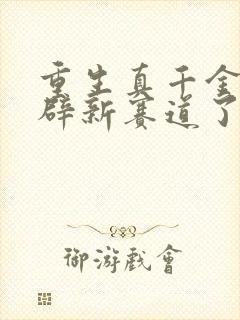 重生真千金
辟新赛道了
御游戲會